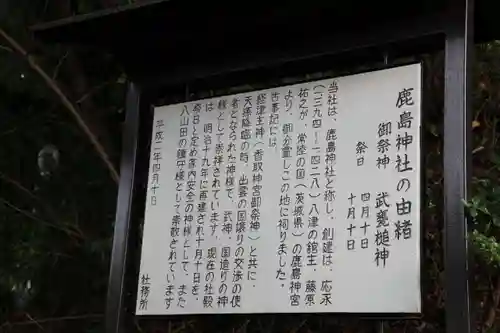 鹿島神社の由緒
御祭神　武甕槌神
祭日　四月十日
十月十日
当社は、鹿島神社と称し、創建は、応永
(一三九四~一四二八)八津の館主、藤原
祐之が、常陸の国(茨城県)の鹿島神宮
より、御分霊しこの地に祠りました。
古事記には、
経津主神(香取神宮御祭神)と共に、
天孫降臨の時、出雲の国譲りの交渉の使
者となられた神様で、武神、国造りの神
様として崇拝されています。現在の社殿
は、明治十九年に再建され十月十日を、
祭日と定め家内安全の神様として、また、
八山田の鎮守様として崇敬されています
平成二年四月十日
社務所